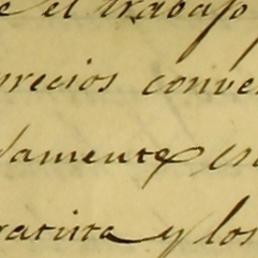 el trabajo
precios conve
damente en
ratuita y los